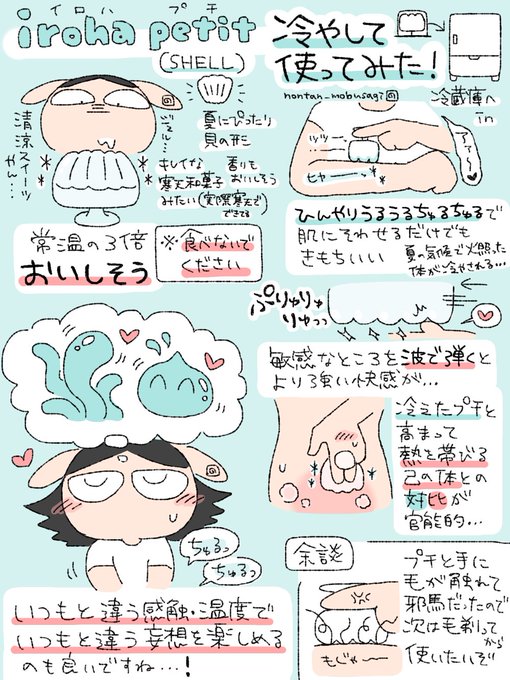 イロハ プチ
iroha petit
(SHELL)
冷やして
使ってみた!
nontan_mobusagi
冷蔵庫へ
in
ジェル…
清涼スイーツ
やん…
夏にぴったり
貝の形
キレイな
寒天和菓子
みたい(実際寒天で
できてる
香りも
おいしそう
常温の3倍
おいしそう
※食べないで
ください
ツツー…
ヒャー…
アァ〜…
ひんやりうるうるちゅるちゅるで
肌にそわせるだけでも
きもちいい
夏の気候で火照った
体が冷やされる…
ぷりゅりゅ
りゅっっ
敏感なところを波で弾くと
より強い快感が…
冷えたプチと
高まって
熱を帯びる
己の体との
対比が
官能的…
ちゅるっ
ちゅるっ
いつもと違う感触・温度で
いつもと違う妄想を楽しめる
のも良いですね…!
余談
プチと手に
毛が触れて
邪魔だったので
次は毛剃って
から
使いたいぞ
もじゃー